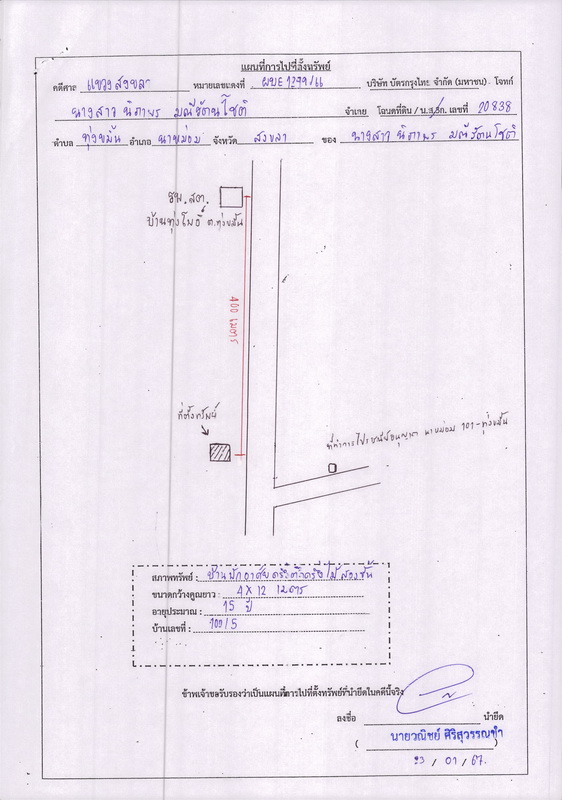 แผนที่การไปที่ตั้งทรัพย์
คดีศาล แขวงสงขลา หมายเลขแดงที่ ผบE 1299/66 บริษัท บัตรกรุงไทย จำกัด (มหาชน) โจทก์
นางสาว นิดาพร มณีรัตนโชติ จำเลย โฉนดที่ดิน / น.ส.3ก. เลขที่ 20838
ตำบล ทุ่งขมิ้น อำเภอ นาหม่อม จังหวัด สงขลา ของ นางสาว นิดาพร มณีรัตนโชติ
รพ.สต.
บ้านทุ่งโพธิ์ ต.ทุ่งขมิ้น
400 เมตร
ที่ตั้งทรัพย์
ที่ทำการไปรษณีย์อนุญาต นาหม่อม 101-ทุ่งขมิ้น
สภาพทรัพย์ : บ้านพักอาศัยครึ่งตึกครึ่งไม้สองชั้น
ขนาดกว้างคูณยาว : 4 x 12 เมตร
อายุประมาณ : 15 ปี
บ้านเลขที่ : 100/5
ข้าพเจ้าขอรับรองว่าเป็นแผนที่การไปที่ตั้งทรัพย์ที่นำยึดในคดีนี้จริง
ลงชื่อ นำยึด
( นายวณิชย์ ศิริสุวรรณชำ )
23 / 01 / 67.